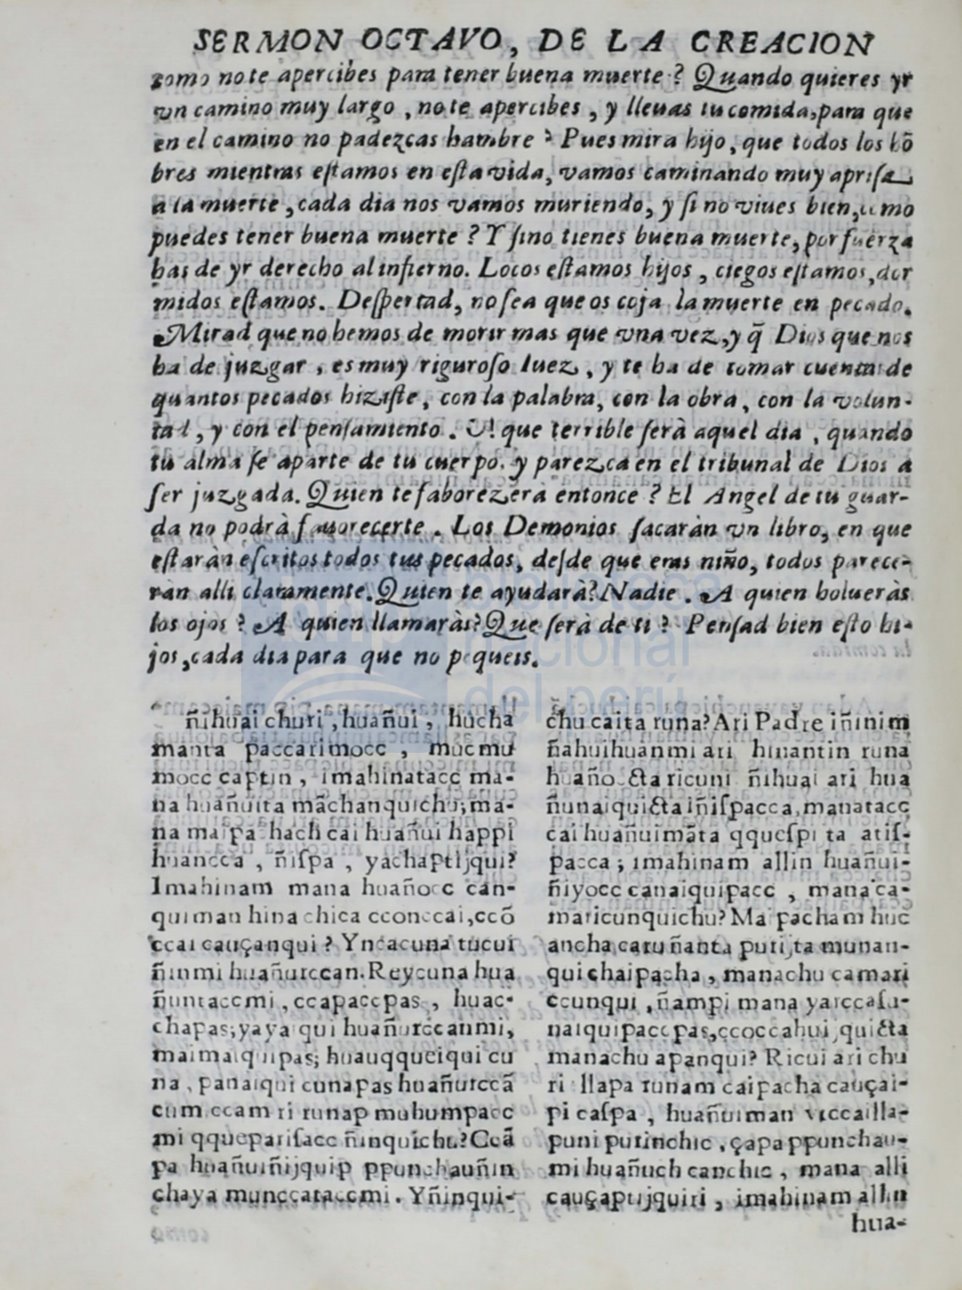 SERMON OCTAVO, DE LA CREACION
como no te apercibes para tener buena muerte? Quando quieres yr
vn camino muy largo, no te apercibes, y lleuas tu comida, para que
en el camino no padezcas hambre? Pues mira hijo, que todos los hō
bres mientras eſtamos en eſta vida, vamos caminando muy aprisa
a la muerte, cada dia nos vamos muriendo, y ſi no viues bien, como
puedes tener buena muerte? Y ſino tienes buena muerte, por fuerza
has de yr derecho al infierno. Locos eſtamos hijos, ciegos eſtamos, dor
midos eſtamos. Deſpertad, no ſea que os coja la muerte en pecado.
Mirad que no hemos de morir mas que vna vez, y q̃ Dios que nos
ha de juzgar, es muy riguroſo Iuez, y te ha de tomar cuenta de
quantos pecados hiziſte, con la palabra, con la obra, con la volun-
tad, y con el penſamiento. O! que terrible ſerà aquel dia, quando
tu alma ſe aparte de tu cuerpo. y parezca en el tribunal de Dios a
ſer juzgada. Quien te faborezera entonce? El Angel de tu guar-
da no podrà fauorecerte. Los Demonios ſacaràn vn libro, en que
eſtaràn eſcritos todos tus pecados, deſde que eras niño, todos parece-
ràn alli claramente. Quien te ayudarà? Nadie. A quien bolueràs
los ojos? A quien llamaràs? Que ſerà de ti? Penſad bien eſto hi-
jos, cada dia para que no pequeis.
ñihuai churi, huañui, hucha
manta paccarimocc, mucmu
mocc captin, imahinatacc ma-
na huañuita mãchanquichu, ma-
na ma pa hach cai huañui happi
huancca, ñiſpa, yachaptijqui?
Imahinam mana huañocc can-
quiman hina chica cconccai, ccõ
ccai cauçanqui? Yncacuna tucui
ñinmi huañurccan. Reycuna hua
ñuntaccmi, ccapaccpas, huac-
chapas, yaya qui huañurccanmi,
maimaiquipas, huauqqueiqui cu
na, panaiqui cunapas huañurccã
cum ccam ri runap muhumpacc
mi qquepariſacc ñinquichu? Ccã
pa huañuiñijquip ppunchauñin
chaya munccataccmi. Yñinqui-
chu caita runa? Ari Padre iñinim
ñahuihuanmi ari hinantin runa
huañoctaricuni ñihuai ari hua
ñunaiquicta iñiſpacca, manatacc
cai huañuimãta qqueſpi ta atiſ-
pacca, imahinam allin huañui-
ñiyocc canaiquipacc, mana ca-
maricunquichu? Ma pacham huc
ancha caru ñanta purijta munan-
qui chaipacha, manachu camari
ccunqui, ñampi mana yarccaſu-
naiquipaccpas, ccoccahuiquicta
manachu apanqui? Ricui ari chu
ri llapa runam caipacha cauçai-
pi caſpa, huañuiman vtccailla-
puni purinchic, çapa ppunchau-
mi huañuch canchic, mana alli
cauçaptijquiri, imahinam allin
hua-
biblioteca
nacional
del perú